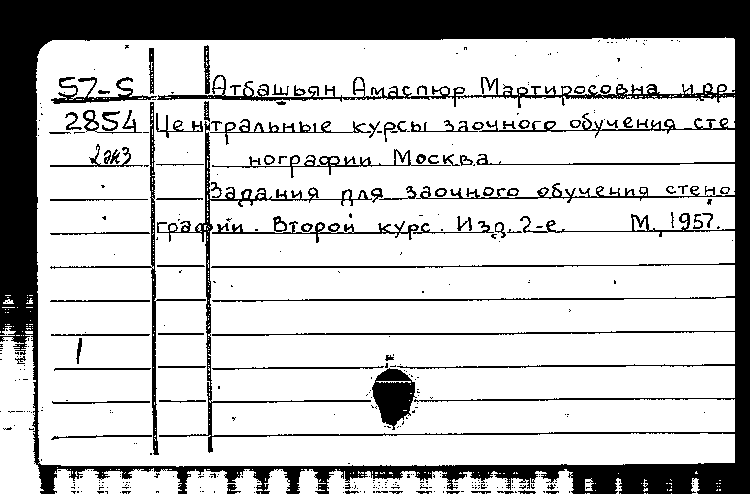 57-5 Атбашьян, Амаспюр Мартиросовна и др.
2854 Центральные курсы заочного обучения сте
2экз нографии. Москва.
Задания для заочного обучения стено
графии. Второй курс. Изд. 2-е. М., 1957.
1